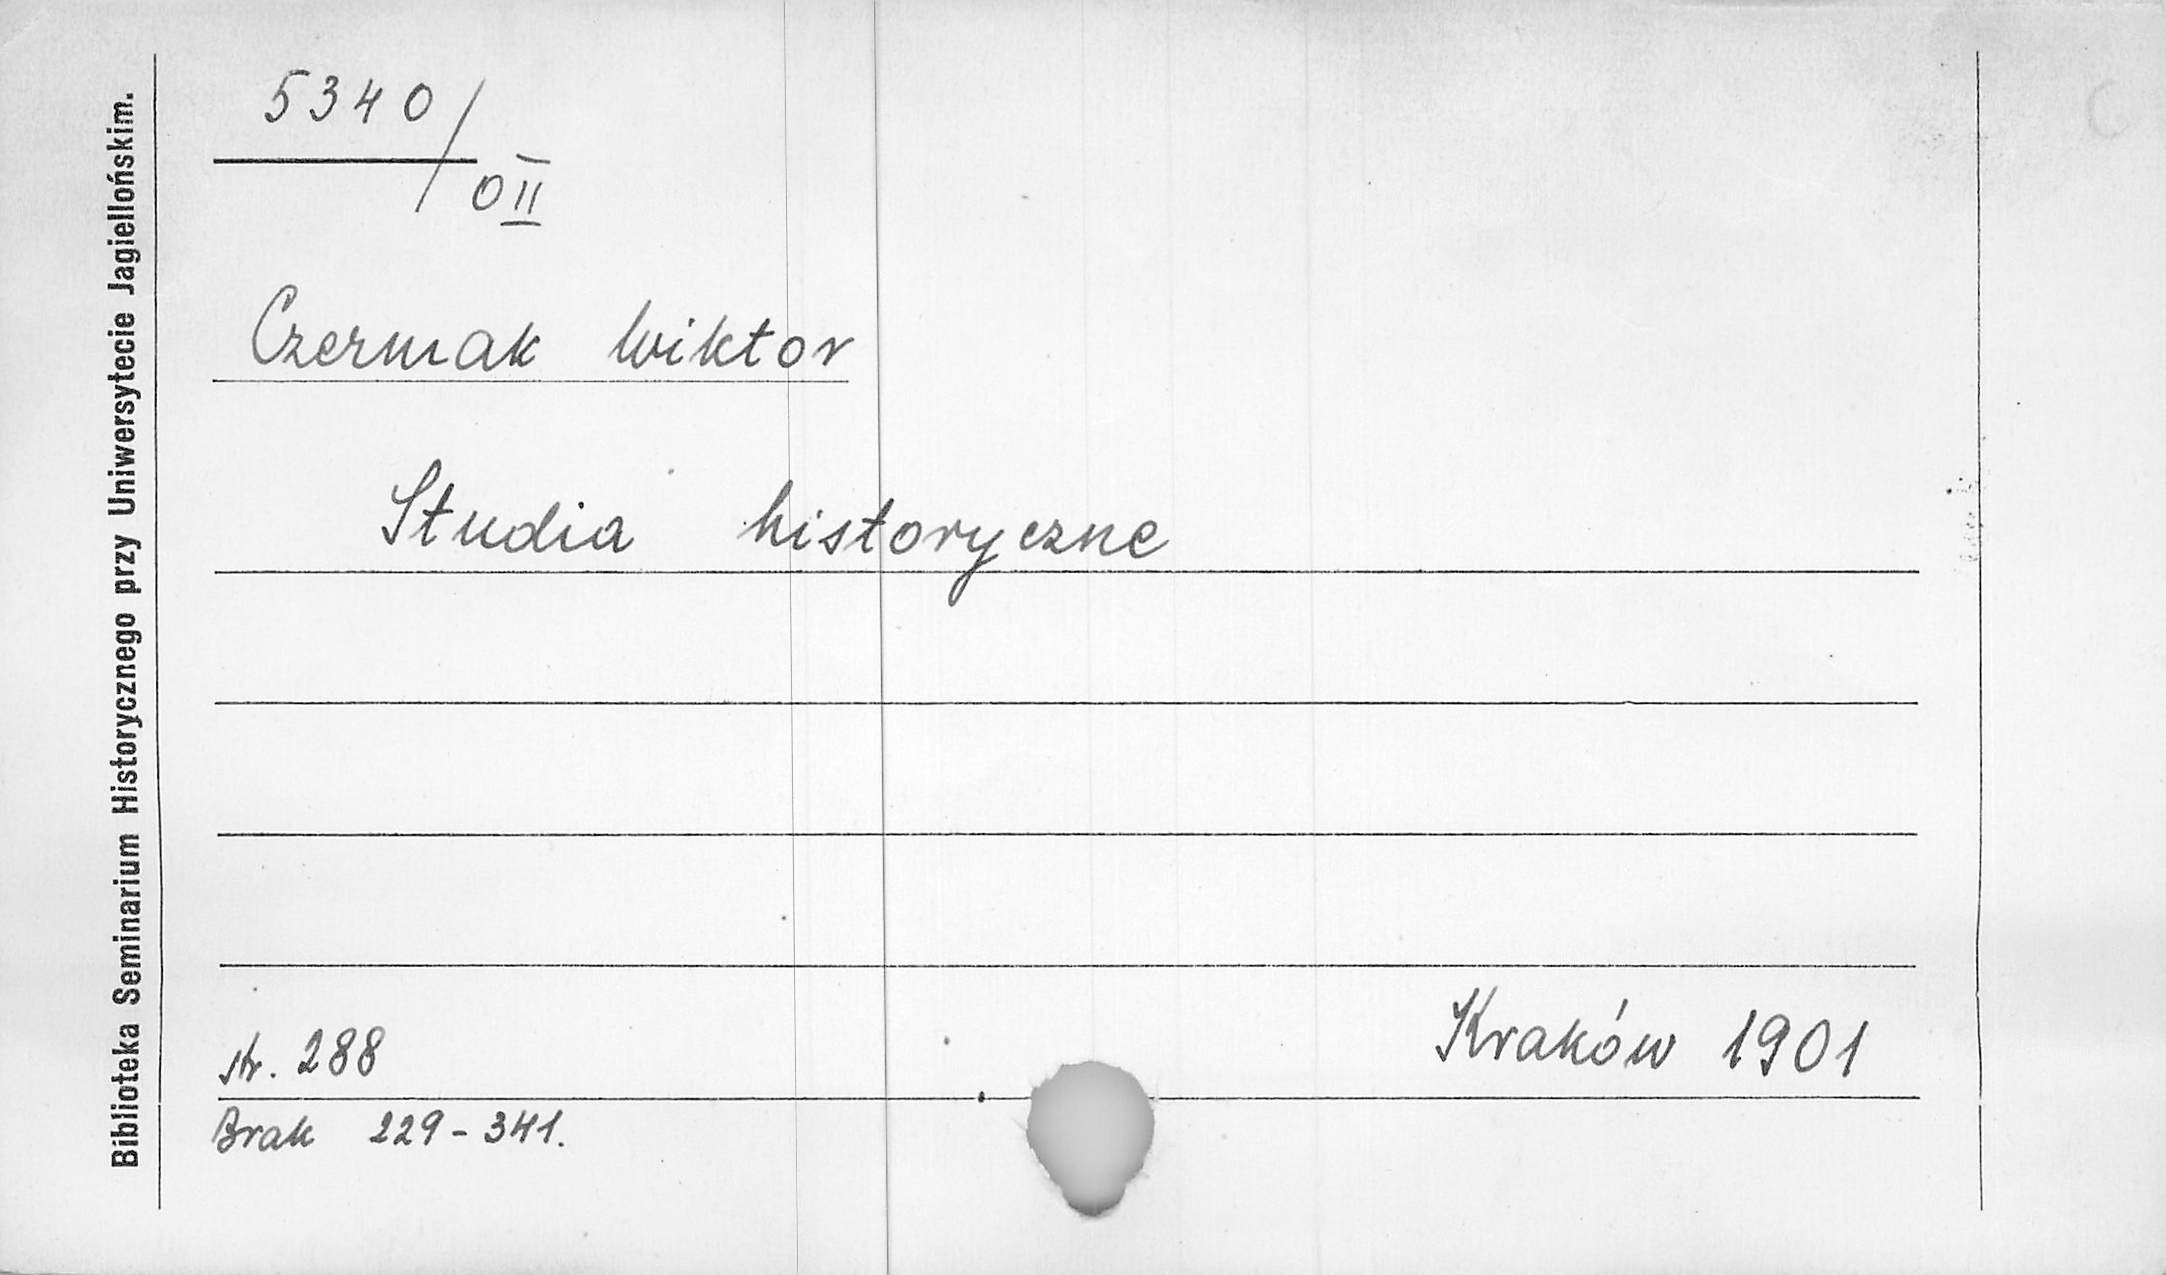 5340/
O II
Czermak Wiktor
Studia historyczne
str. 288
Kraków 1901
Brak 229-341.
Biblioteka Seminarium Historycznego przy Uniwersytecie Jagiellońskim.